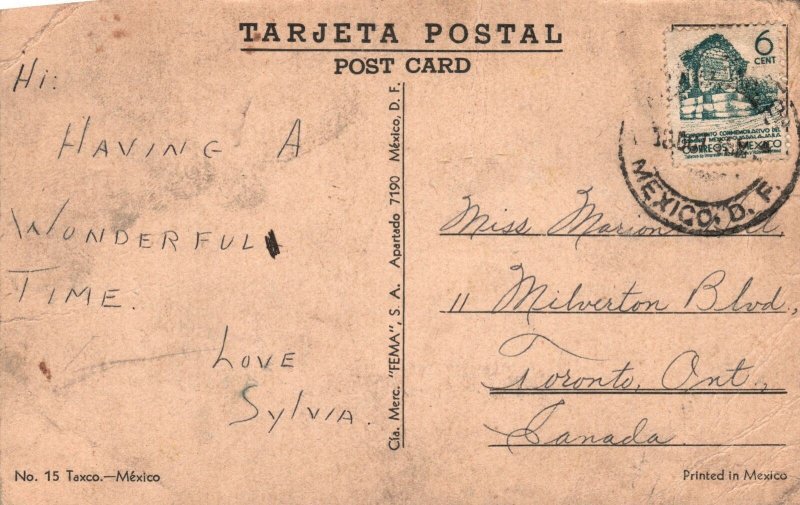 TARJETA POSTAL
POST CARD
Hi:
HAVING A
WONDERFUL
TIME.
LOVE
SYLVIA.
No. 15 Taxco.—México
Cía. Merc. "FEMA", S. A. Apartado 7190 México, D. F.
6
CENT
CONMEMORATIVO DEL
MEXICO GUADALAJARA
CORREOS MEXICO
MEXICO, D. F.
Miss. Marion
11 Milverton Blvd.,
Toronto, Ont.,
Canada.
Printed in Mexico